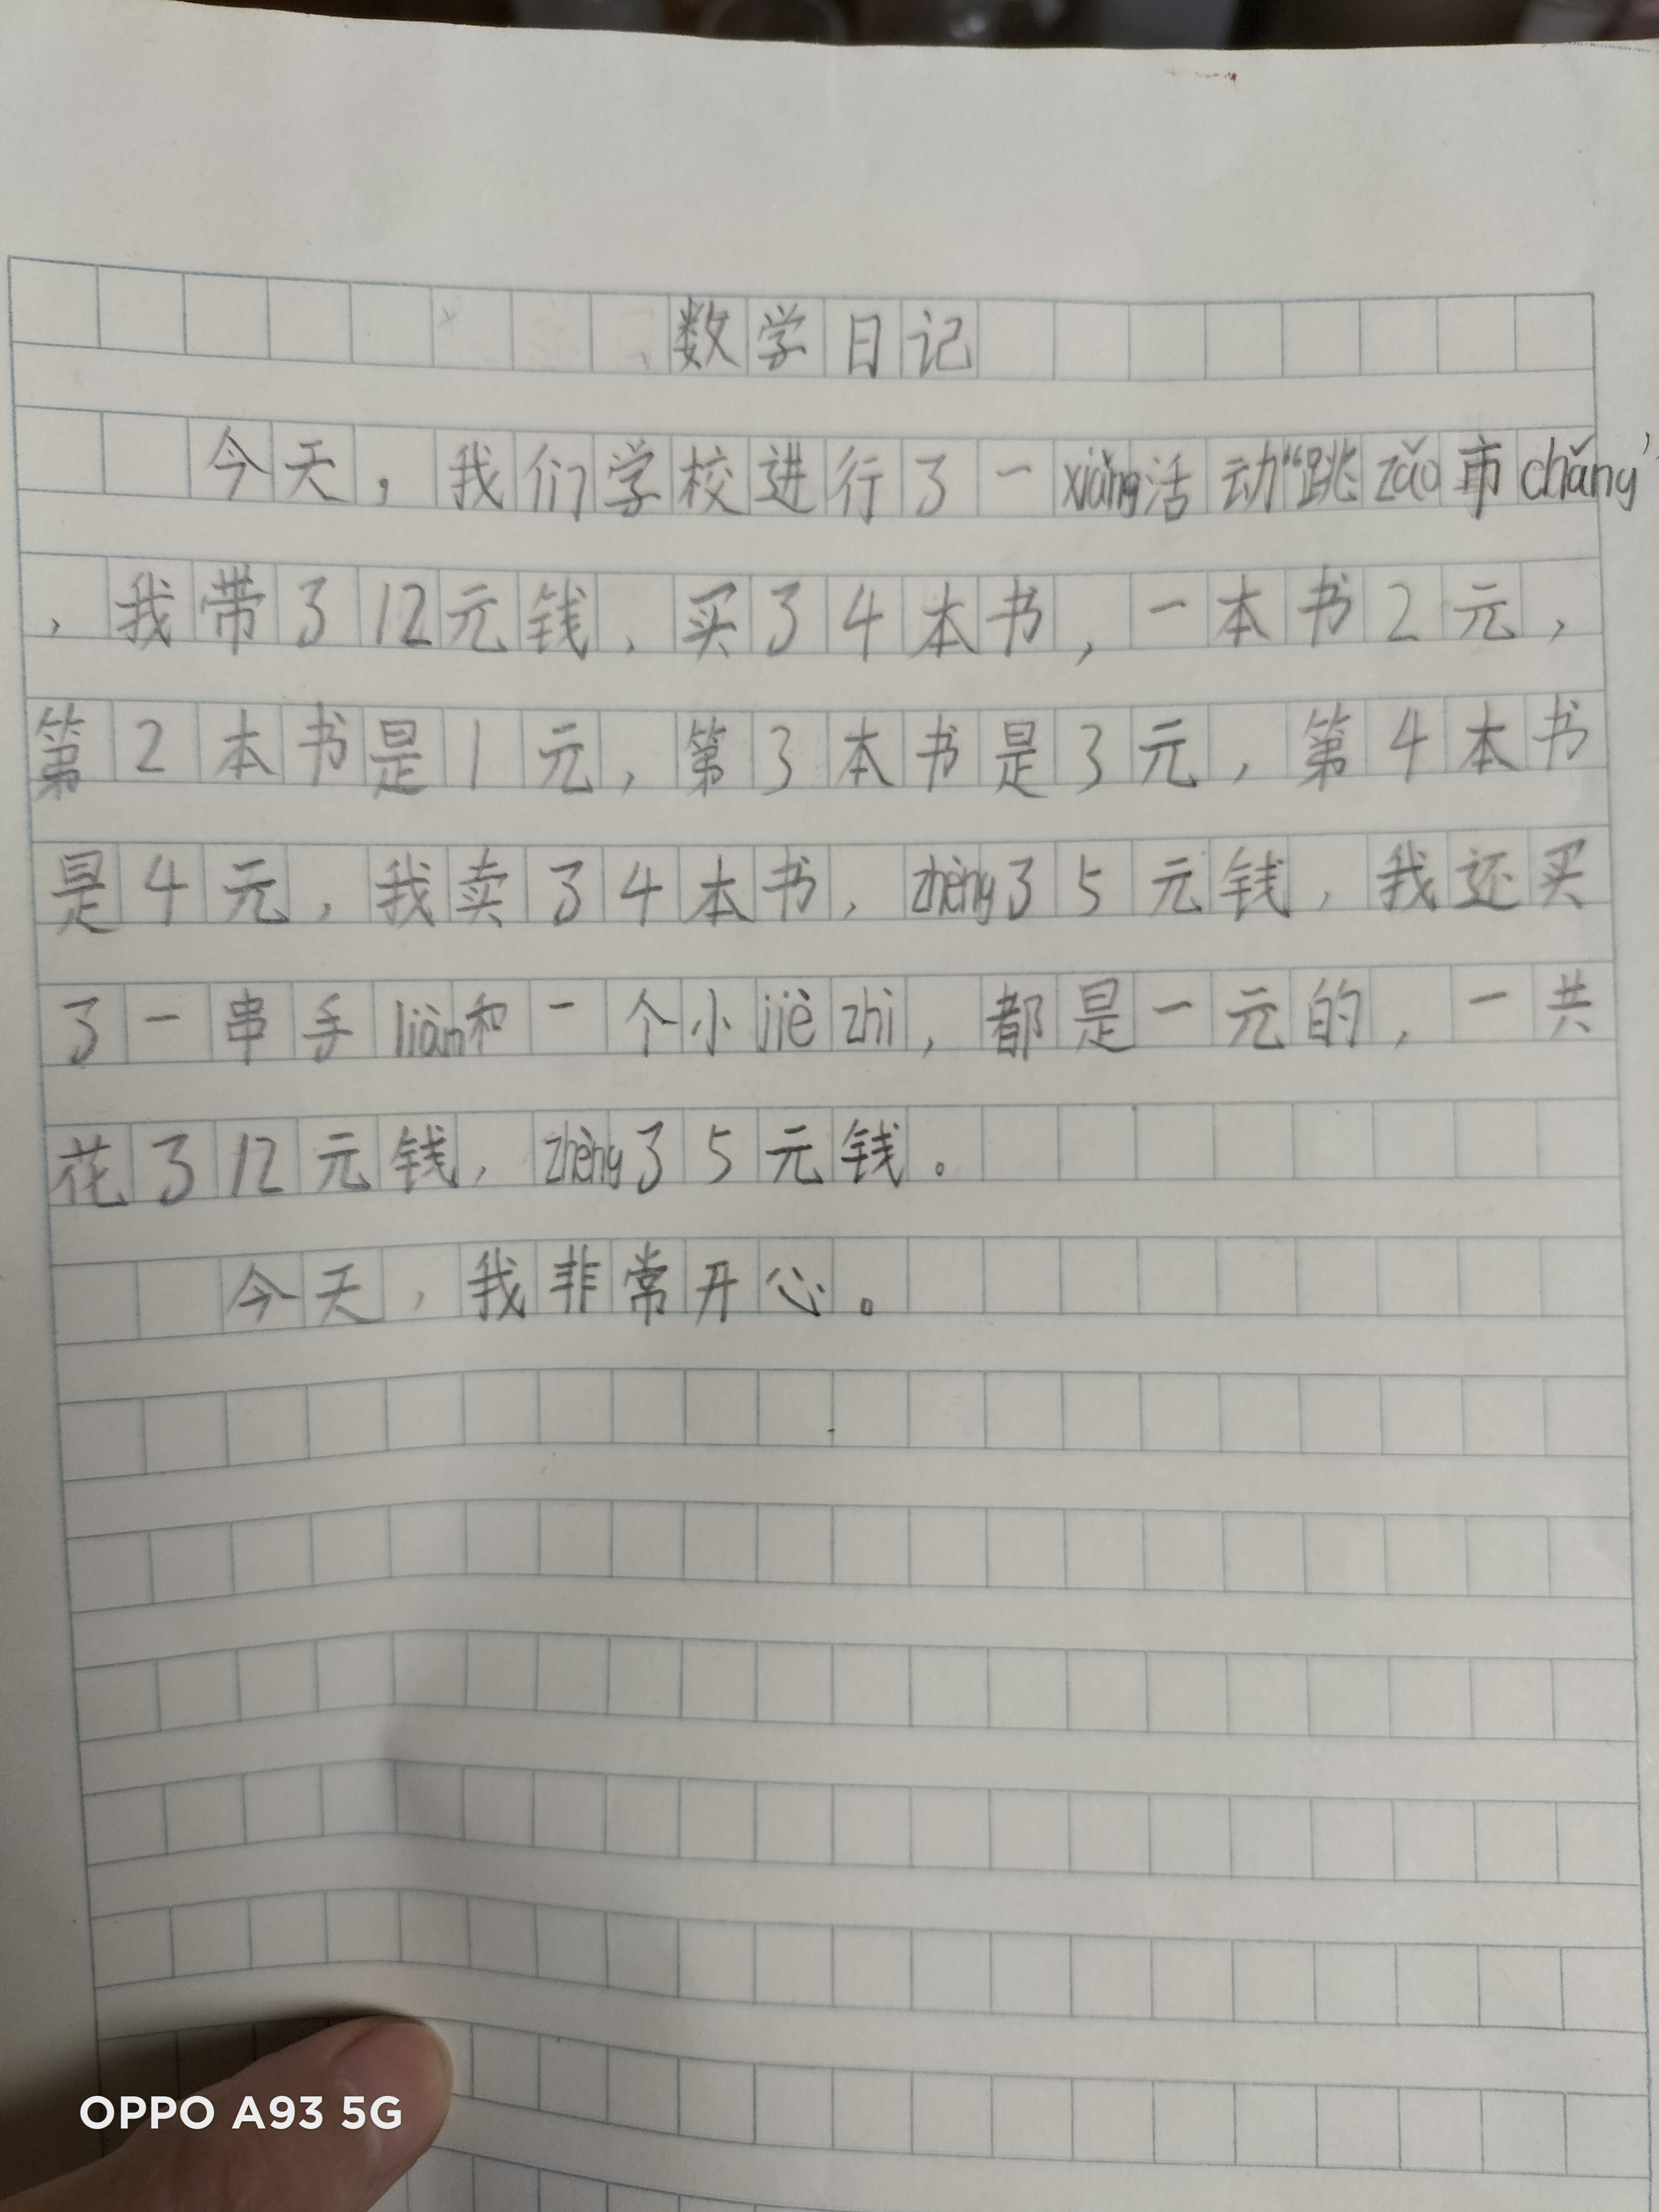 数学日记
今天，我们学校进行了一xiàng活动“跳zǎo市chǎng”
，我带了12元钱，买了4本书，一本书2元，
第2本书是1元，第3本书是3元，第4本书
是4元，我卖了4本书，zhèng了5元钱，我还买
了一串手liàn和一个小jiè zhi，都是一元的，一共
花了12元钱，zhèng了5元钱。
今天，我非常开心。
OPPO A93 5G